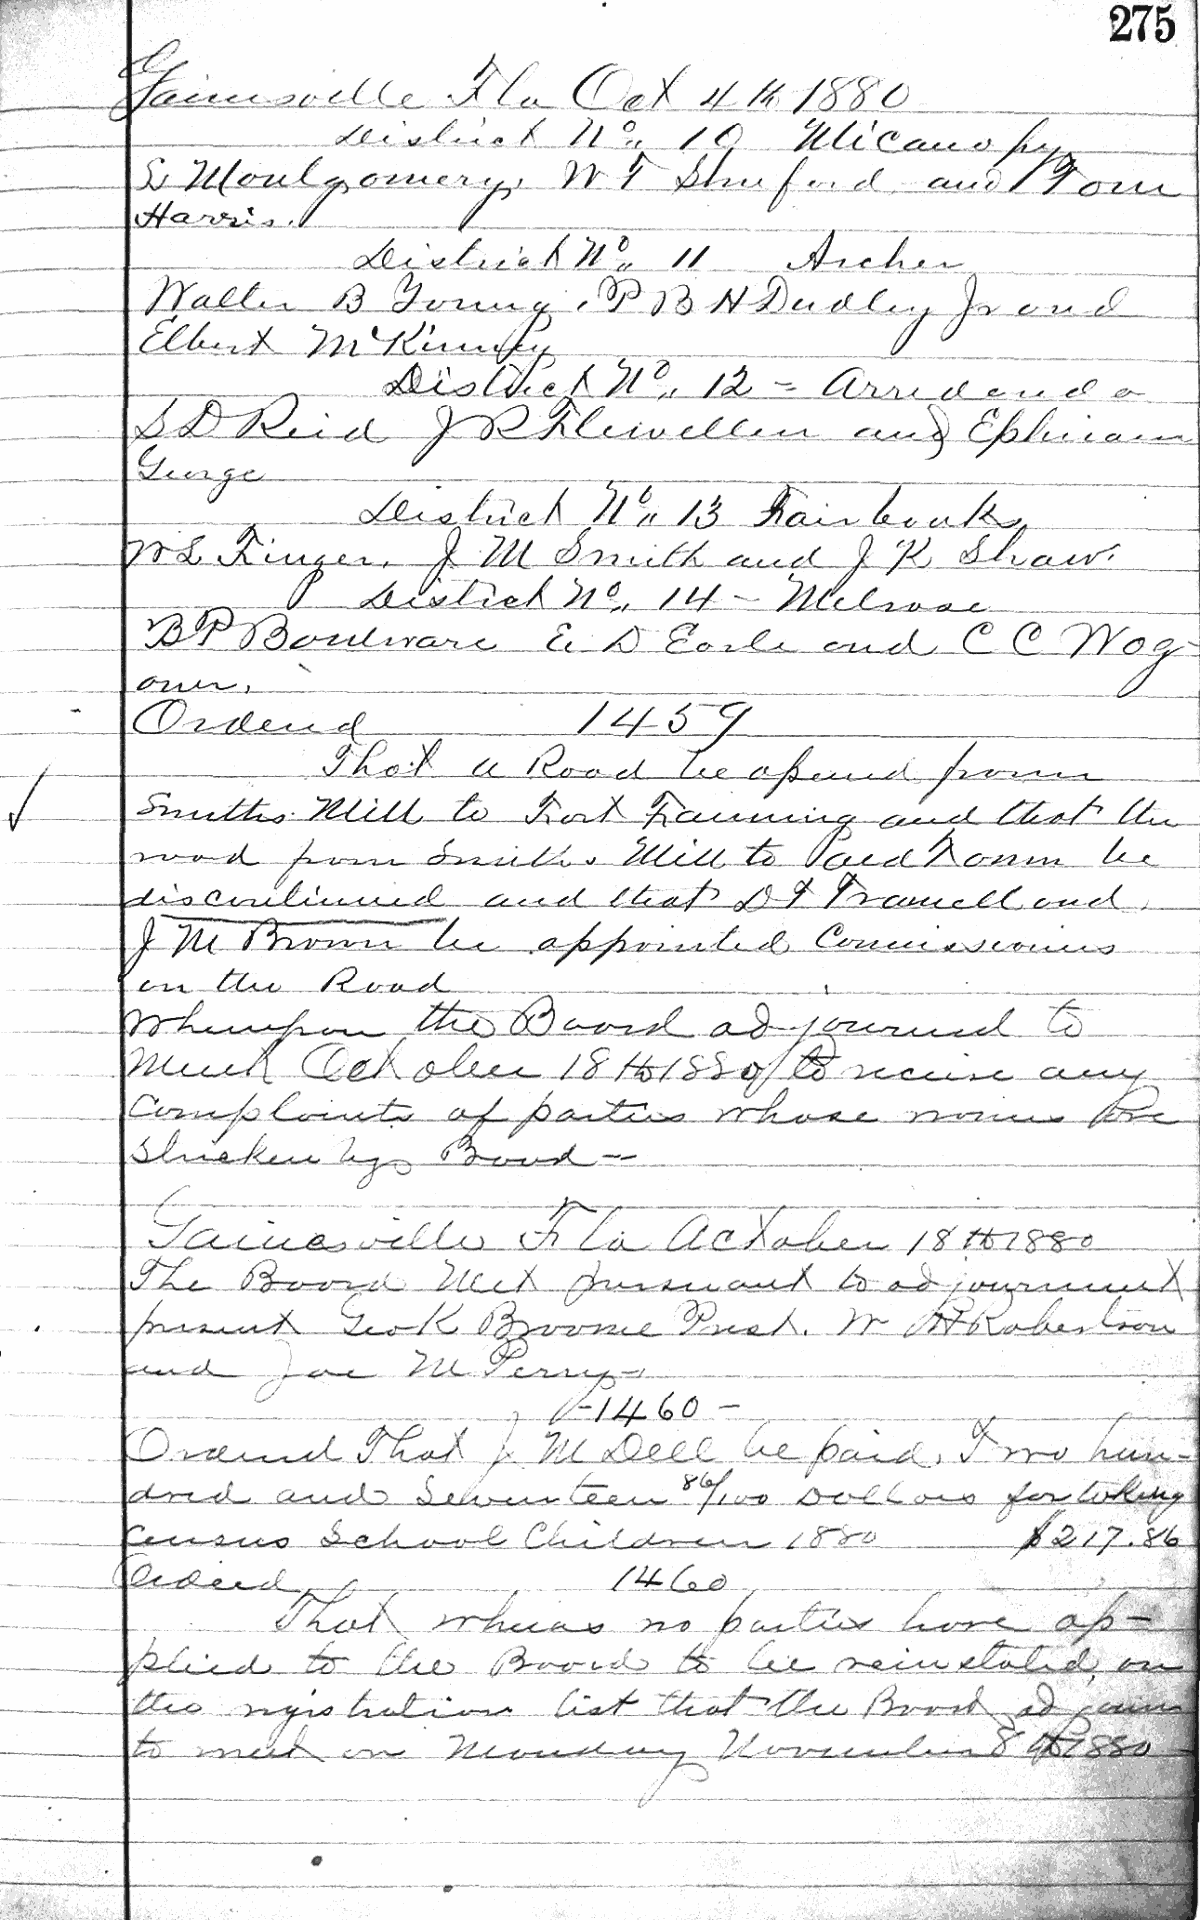 275
Gainesville Fla Oct 4th 1880
District No. 10 Micanopy
E Montgomery, W T Shuford and Tom
Harris.
District No. 11 Archer
Walter B Young, P B H Dudley Jr and
Elbert McKinney
District No. 12 = Arredondo
S D Reid J R Flewellen and Ephriam
George
District No. 13 Fairbanks
W L Finger. J M Smith and J K Shaw.
District No. 14 - Melrose
B P Boulware E D Earle and C C Wag-
oner.
Ordered 1459
That a Road be opened from
Smiths Mill to Fort Fanning and that the
road from Smiths Mill to be
discontinued and that D T Tramell and
J M Brown be appointed Commissioners
on the Road
Whereupon the Board adjourned to
Meet October 18th 1880 to receive any
Complaints of parties whose names are
stricken by Board --
Gainesville Fla October 18th 1880
The Board Met pursuant to adjournment
present Geo K Broome Prest. W Robertson
and Joe M Perry =
- 1460 -
Ordered That J M Dell be paid, Two hun-
dred and Seventeen 86/100 Dollars for taking
Census School Children 1880 $217.86
Ordered 1460
That whereas no parties have ap-
plied to the Board to be reinstated, on
the registration list that the Board adjourn
to meet on Monday November 8th 1880